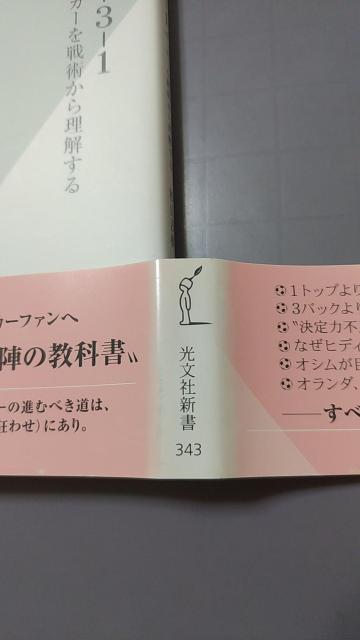 3-1
カーを戦術から理解する
カーファンへ
陣の教科書〟
ーの進むべき道は、
狂わせ）にあり。
光文社新書
343
1トップより
3バックより
〝決定力不
なぜヒディ
オシムが目
オランダ、
──すべ